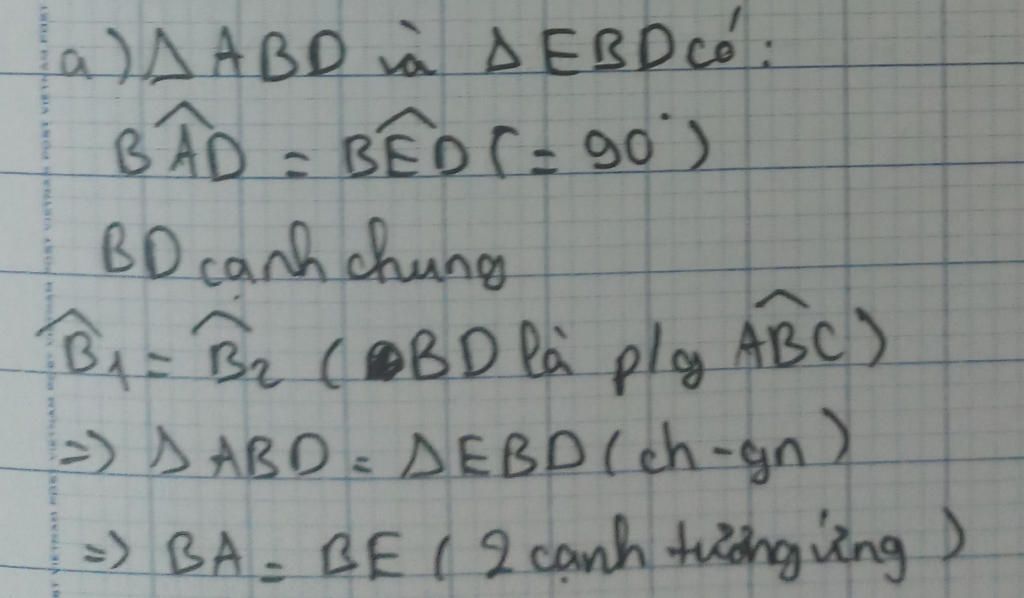 a) Δ ABD và Δ EBD có:
BÂD = BÊD (= 90°)
BD cạnh chung
B̂₁ = B̂₂ ( BD là p/g AB̂C)
=> Δ ABD = Δ EBD (ch-gn)
=> BA = BE ( 2 cạnh tương ứng )